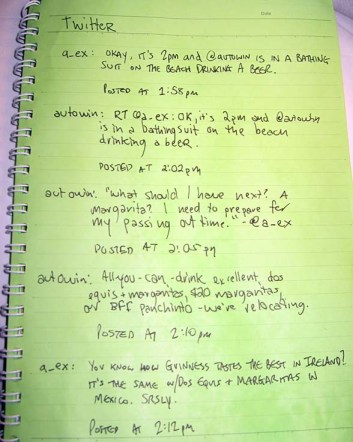 Twitter
a_ex: OKAY, IT'S 2pm and @autowin IS IN A BATHING
SUIT ON THE BEACH DRINKING A BEER.
POSTED AT 1:58pm
autowin: RT @a_ex: OK, it's 2pm and @autowin
is in a bathingsuit on the beach
drinking a beer.
POSTED AT 2:02pm
autowin: "What should I have next? A
margarita? I need to prepare for
my passing out time." -@a_ex
POSTED AT 2:05pm
autowin: All-you-can-drink excellent, dos
equis + margaritas, $20 margaritas,
our BFF panchinto - we're relocating.
POSTED AT 2:10pm
a_ex: YOU KNOW HOW GUINNESS TASTES THE BEST IN IRELAND?
IT'S THE SAME W/DOS EQUIS + MARGARITAS IN
MEXICO. SRSLY.
POSTED AT 2:12pm